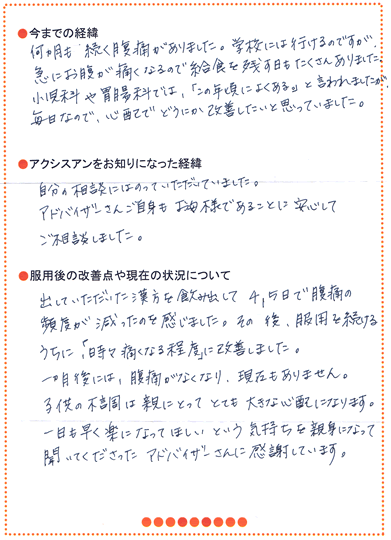 ●今までの経緯
何か月も続く腹痛がありました。学校には行けるのですが、
急にお腹が痛くなるので給食を残す日もたくさんありました。
小児科や胃腸科では、「この年頃によくある」と言われましたが、
毎日なので、心配でどうにか改善したいと思っていました。
●アクシスアンをお知りになった経緯
自分の相談にはのっていただいていました。
アドバイザーさんご自身もお母様であることに安心して
ご相談しました。
●服用後の改善点や現在の状況について
出していただいた漢方を飲み出して4,5日で腹痛の
頻度が減ったのを感じました。その後、服用を続ける
うちに、「時々痛くなる程度」に改善しました。
一か月後には、腹痛がなくなり、現在もありません。
子供の不調は親にとってとても大きな心配になります。
一日も早く楽になってほしいという気持ちを親身になって
聞いてくださったアドバイザーさんに感謝しています。